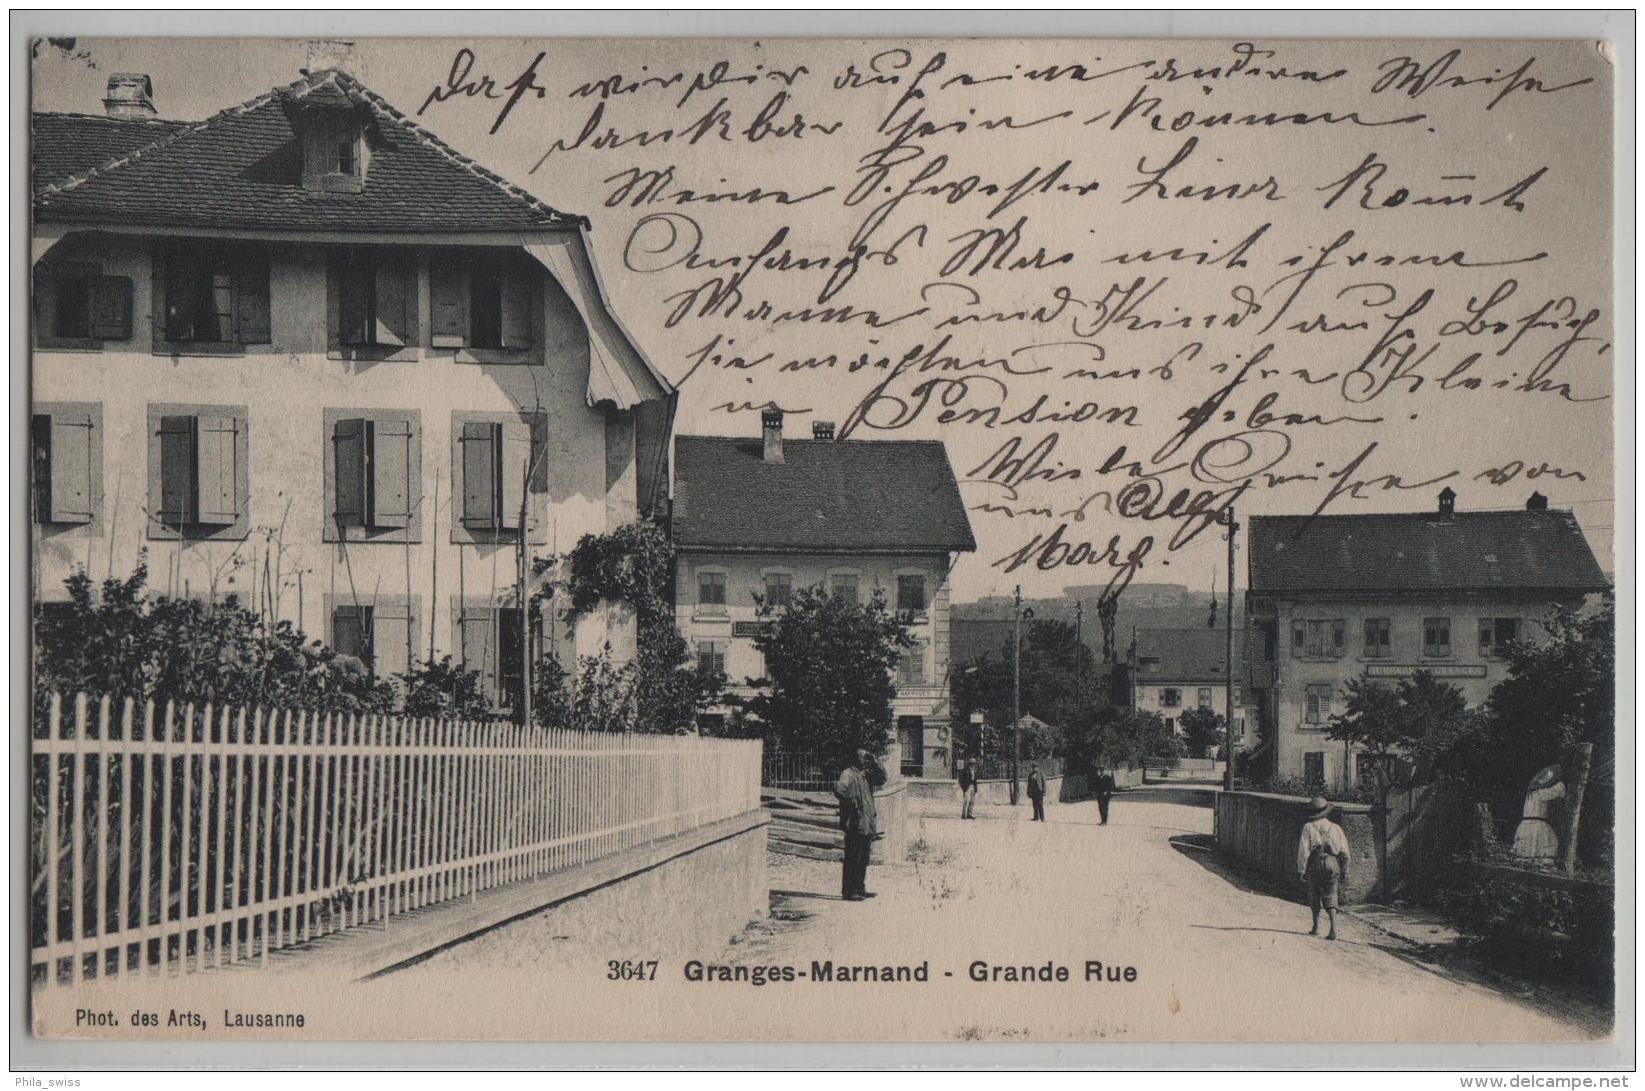 daß wir Dir auf eine andere Weise
dankbar sein können.
Meine Schwester kom̅t
Anfangs Mai mit ihrem
Manne und Kind auf Besuch,
sie möchten uns ihre Kleine
in Pension geben.
Viele Grüße von
uns
Marg.
3647 Granges-Marnand - Grande Rue
Phot. des Arts, Lausanne
Phila_swiss
delcampe.net